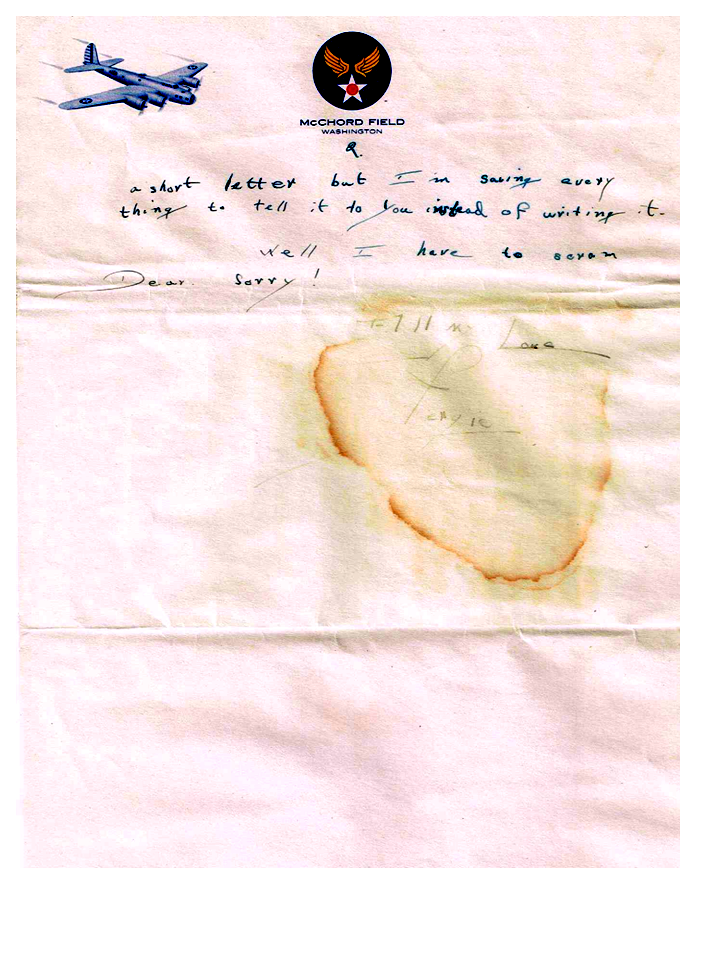 McCHORD FIELD
WASHINGTON
2.
a short letter but I'm saving every
thing to tell it to you instead of writing it.
Well I have to scram
Dear. Sorry!
Love